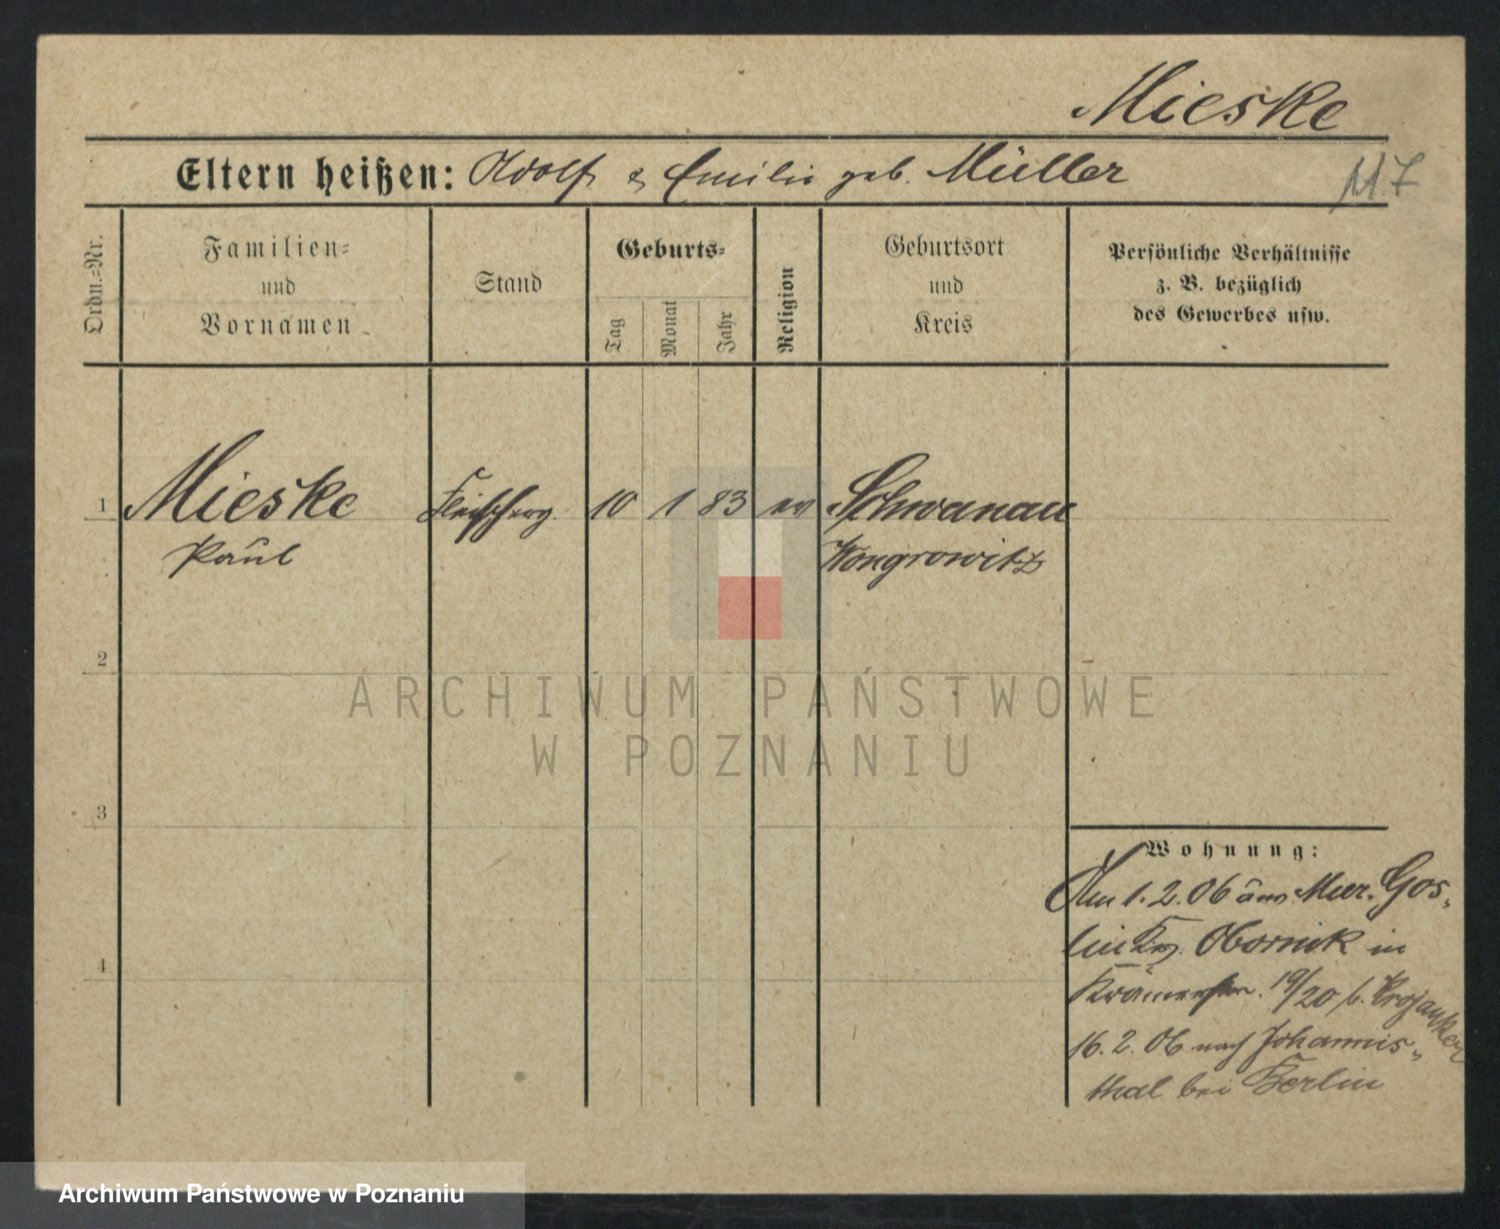 Mieske
Eltern heißen: Adolf & Emilie geb. Müller
117
Ordn.=Nr.
Familien=
und
Vornamen
Stand
Geburts=
Tag
Monat
Jahr
Religion
Geburtsort
und
Kreis
Persönliche Verhältnisse
z. B. bezüglich
des Gewerbes usw.
1 Mieske Fleischerg. 10 1 83 ev Schwanau
Paul Wongrowitz
2
3
4
Wohnung:
Am 1.2.06 aus Mur. Gos„
lin Obornik in
Krämerstr. 19/20 b. Krojanker
16.2.06 nach Johannis„
thal bei Berlin
ARCHIWUM PAŃSTWOWE
W POZNANIU
Archiwum Państwowe w Poznaniu